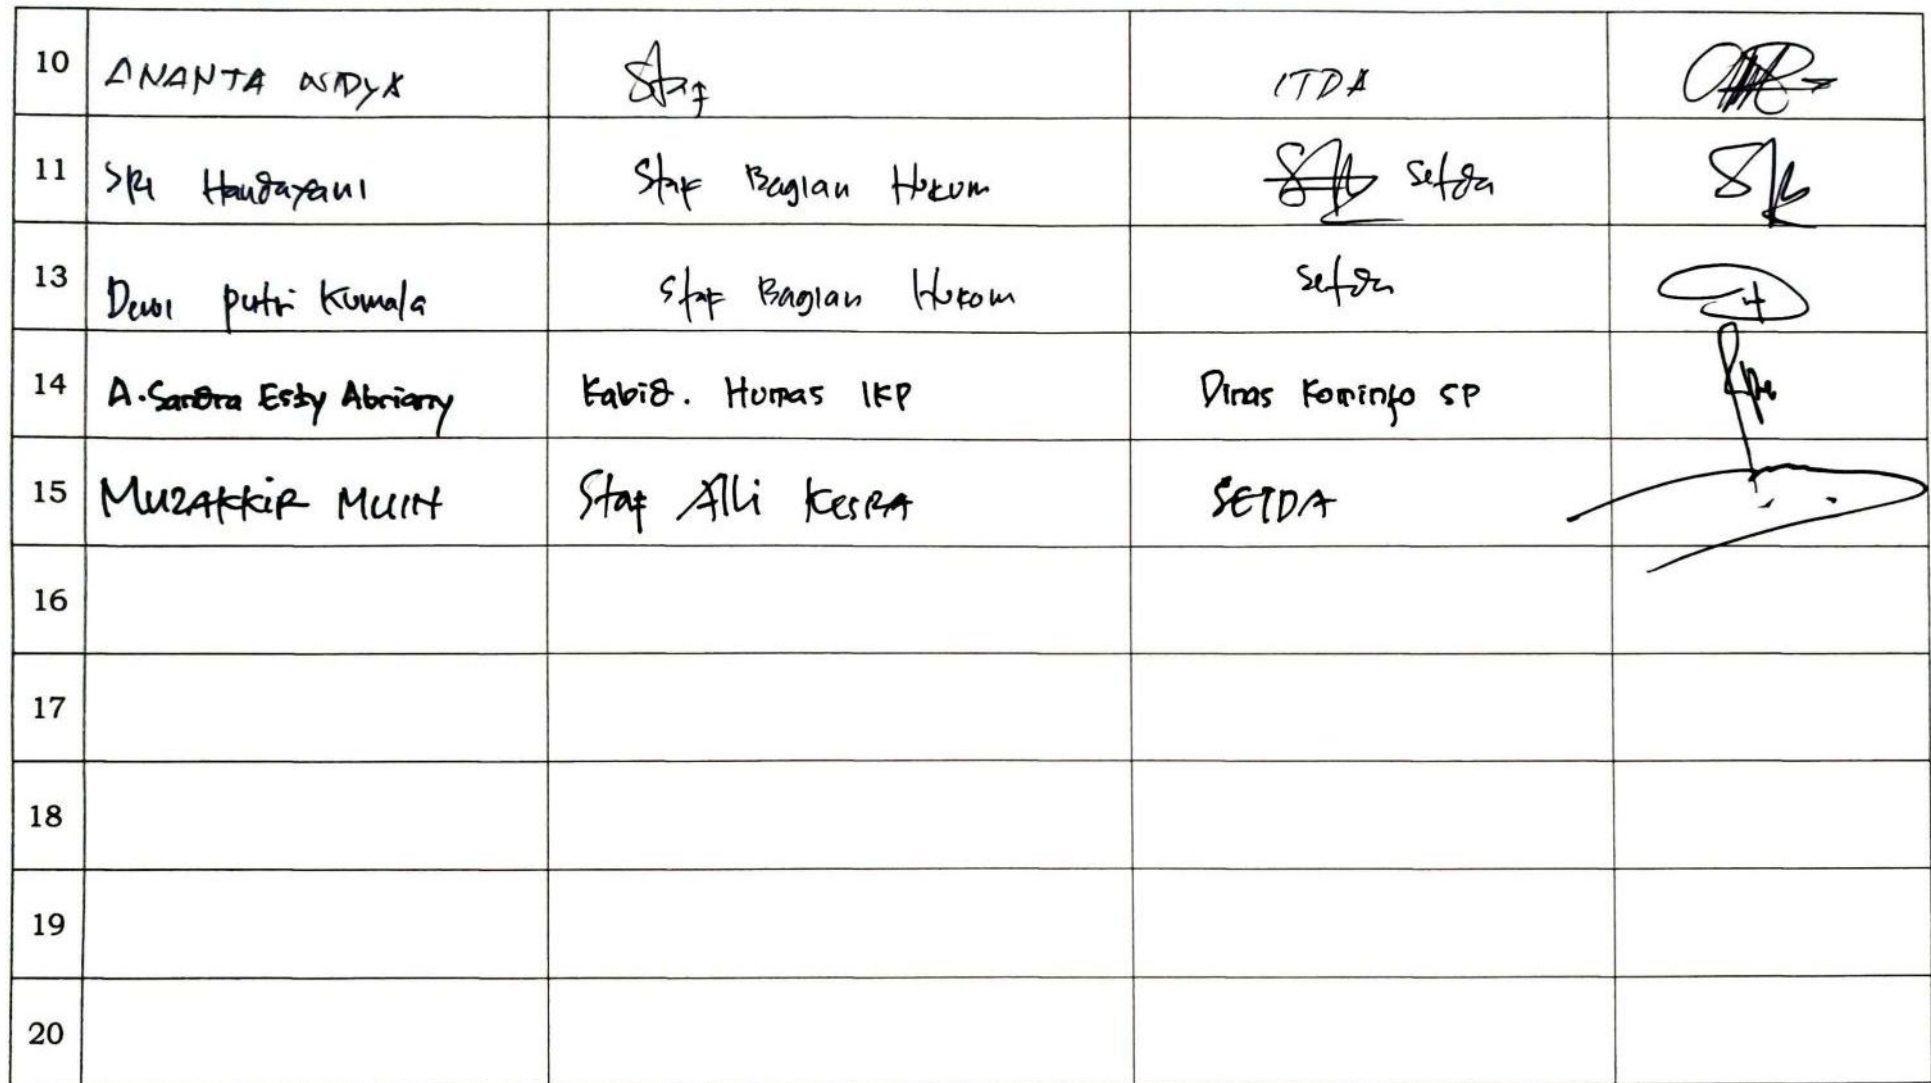 10 ANANTA WIDYA Staf ITDA
11 SRI Handayani Staf Bagian Hukum Setda
13 Dewi putri Kumala Staf Bagian Hukum Setda
14 A. Sandra Esty Abriany Kabid. Humas IKP Dinas Kominfo SP
15 MUZAKKIR MUIN Staf Alli KESRA SETDA
16
17
18
19
20